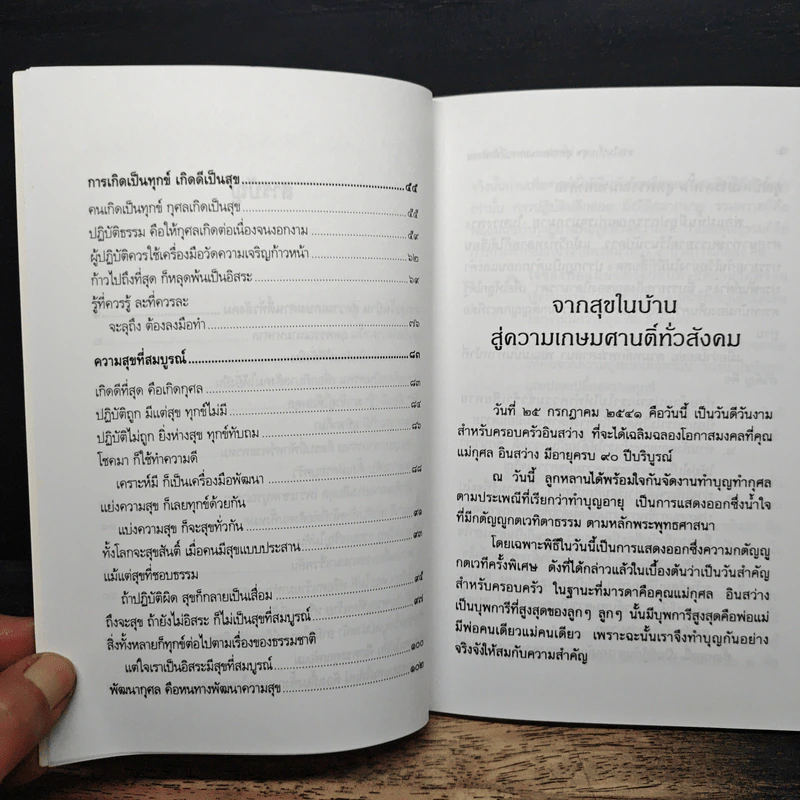 การเกิดเป็นทุกข์ เกิดดีเป็นสุข ๕๔
คนเกิดเป็นทุกข์ กุศลเกิดเป็นสุข ๕๕
ปฏิบัติธรรม คือให้กุศลเกิดต่อเนื่องจนงอกงาม ๕๙
ผู้ปฏิบัติควรใช้เครื่องมือวัดความเจริญก้าวหน้า ๖๒
ก้าวไปถึงที่สุด ก็หลุดพ้นเป็นอิสระ ๖๙
รู้ที่ควรรู้ ละที่ควรละ
จะลุถึง ต้องลงมือทำ ๗๖
ความสุขที่สมบูรณ์ ๘๓
เกิดดีที่สุด คือเกิดกุศล ๘๓
ปฏิบัติถูก มีแต่สุข ทุกข์ไม่มี ๘๔
ปฏิบัติไม่ถูก ยิ่งห่างสุข ทุกข์ทับถม ๘๖
โชคมา ก็ใช้ทำความดี
เคราะห์มี ก็เป็นเครื่องมือพัฒนา ๘๘
แย่งความสุข ก็เลยทุกข์ด้วยกัน
แบ่งความสุข ก็จะสุขทั่วกัน ๙๑
ทั้งโลกจะสุขสันติ์ เมื่อคนมีสุขแบบประสาน ๙๓
แม้แต่สุขที่ชอบธรรม
ถ้าปฏิบัติผิด สุขก็กลายเป็นเสื่อม ๙๕
ถึงจะสุข ถ้ายังไม่อิสระ ก็ไม่เป็นสุขที่สมบูรณ์ ๙๗
สิ่งทั้งหลายก็ทุกข์ต่อไปตามเรื่องของธรรมชาติ
แต่ใจเราเป็นอิสระมีสุขที่สมบูรณ์ ๑๐๐
พัฒนากุศล คือหนทางพัฒนาความสุข ๑๐๒
จากสุขในบ้าน
สู่ความเกษมศานติ์ทั่วสังคม
วันที่ ๒๕ กรกฎาคม ๒๕๔๑ คือวันนี้ เป็นวันดีวันงาม
สำหรับครอบครัวอินสว่าง ที่จะได้เฉลิมฉลองโอกาสมงคลที่คุณ
แม่กุศล อินสว่าง มีอายุครบ ๙๐ ปีบริบูรณ์
ณ วันนี้ ลูกหลานได้พร้อมใจกันจัดงานทำบุญทำกุศล
ตามประเพณีที่เรียกว่าทำบุญอายุ เป็นการแสดงออกซึ่งน้ำใจ
ที่มีกตัญญูกตเวทิตาธรรม ตามหลักพระพุทธศาสนา
โดยเฉพาะพิธีในวันนี้เป็นการแสดงออกซึ่งความกตัญญู
กตเวทีครั้งพิเศษ ดังที่ได้กล่าวแล้วในเบื้องต้นว่าเป็นวันสำคัญ
สำหรับครอบครัว ในฐานะที่มารดาคือคุณแม่กุศล อินสว่าง
เป็นบุพการีที่สูงสุดของลูกๆ ลูกๆ นั้นมีบุพการีสูงสุดคือพ่อแม่
มีพ่อคนเดียวแม่คนเดียว เพราะฉะนั้นเราจึงทำบุญกันอย่าง
จริงจังให้สมกับความสำคัญ